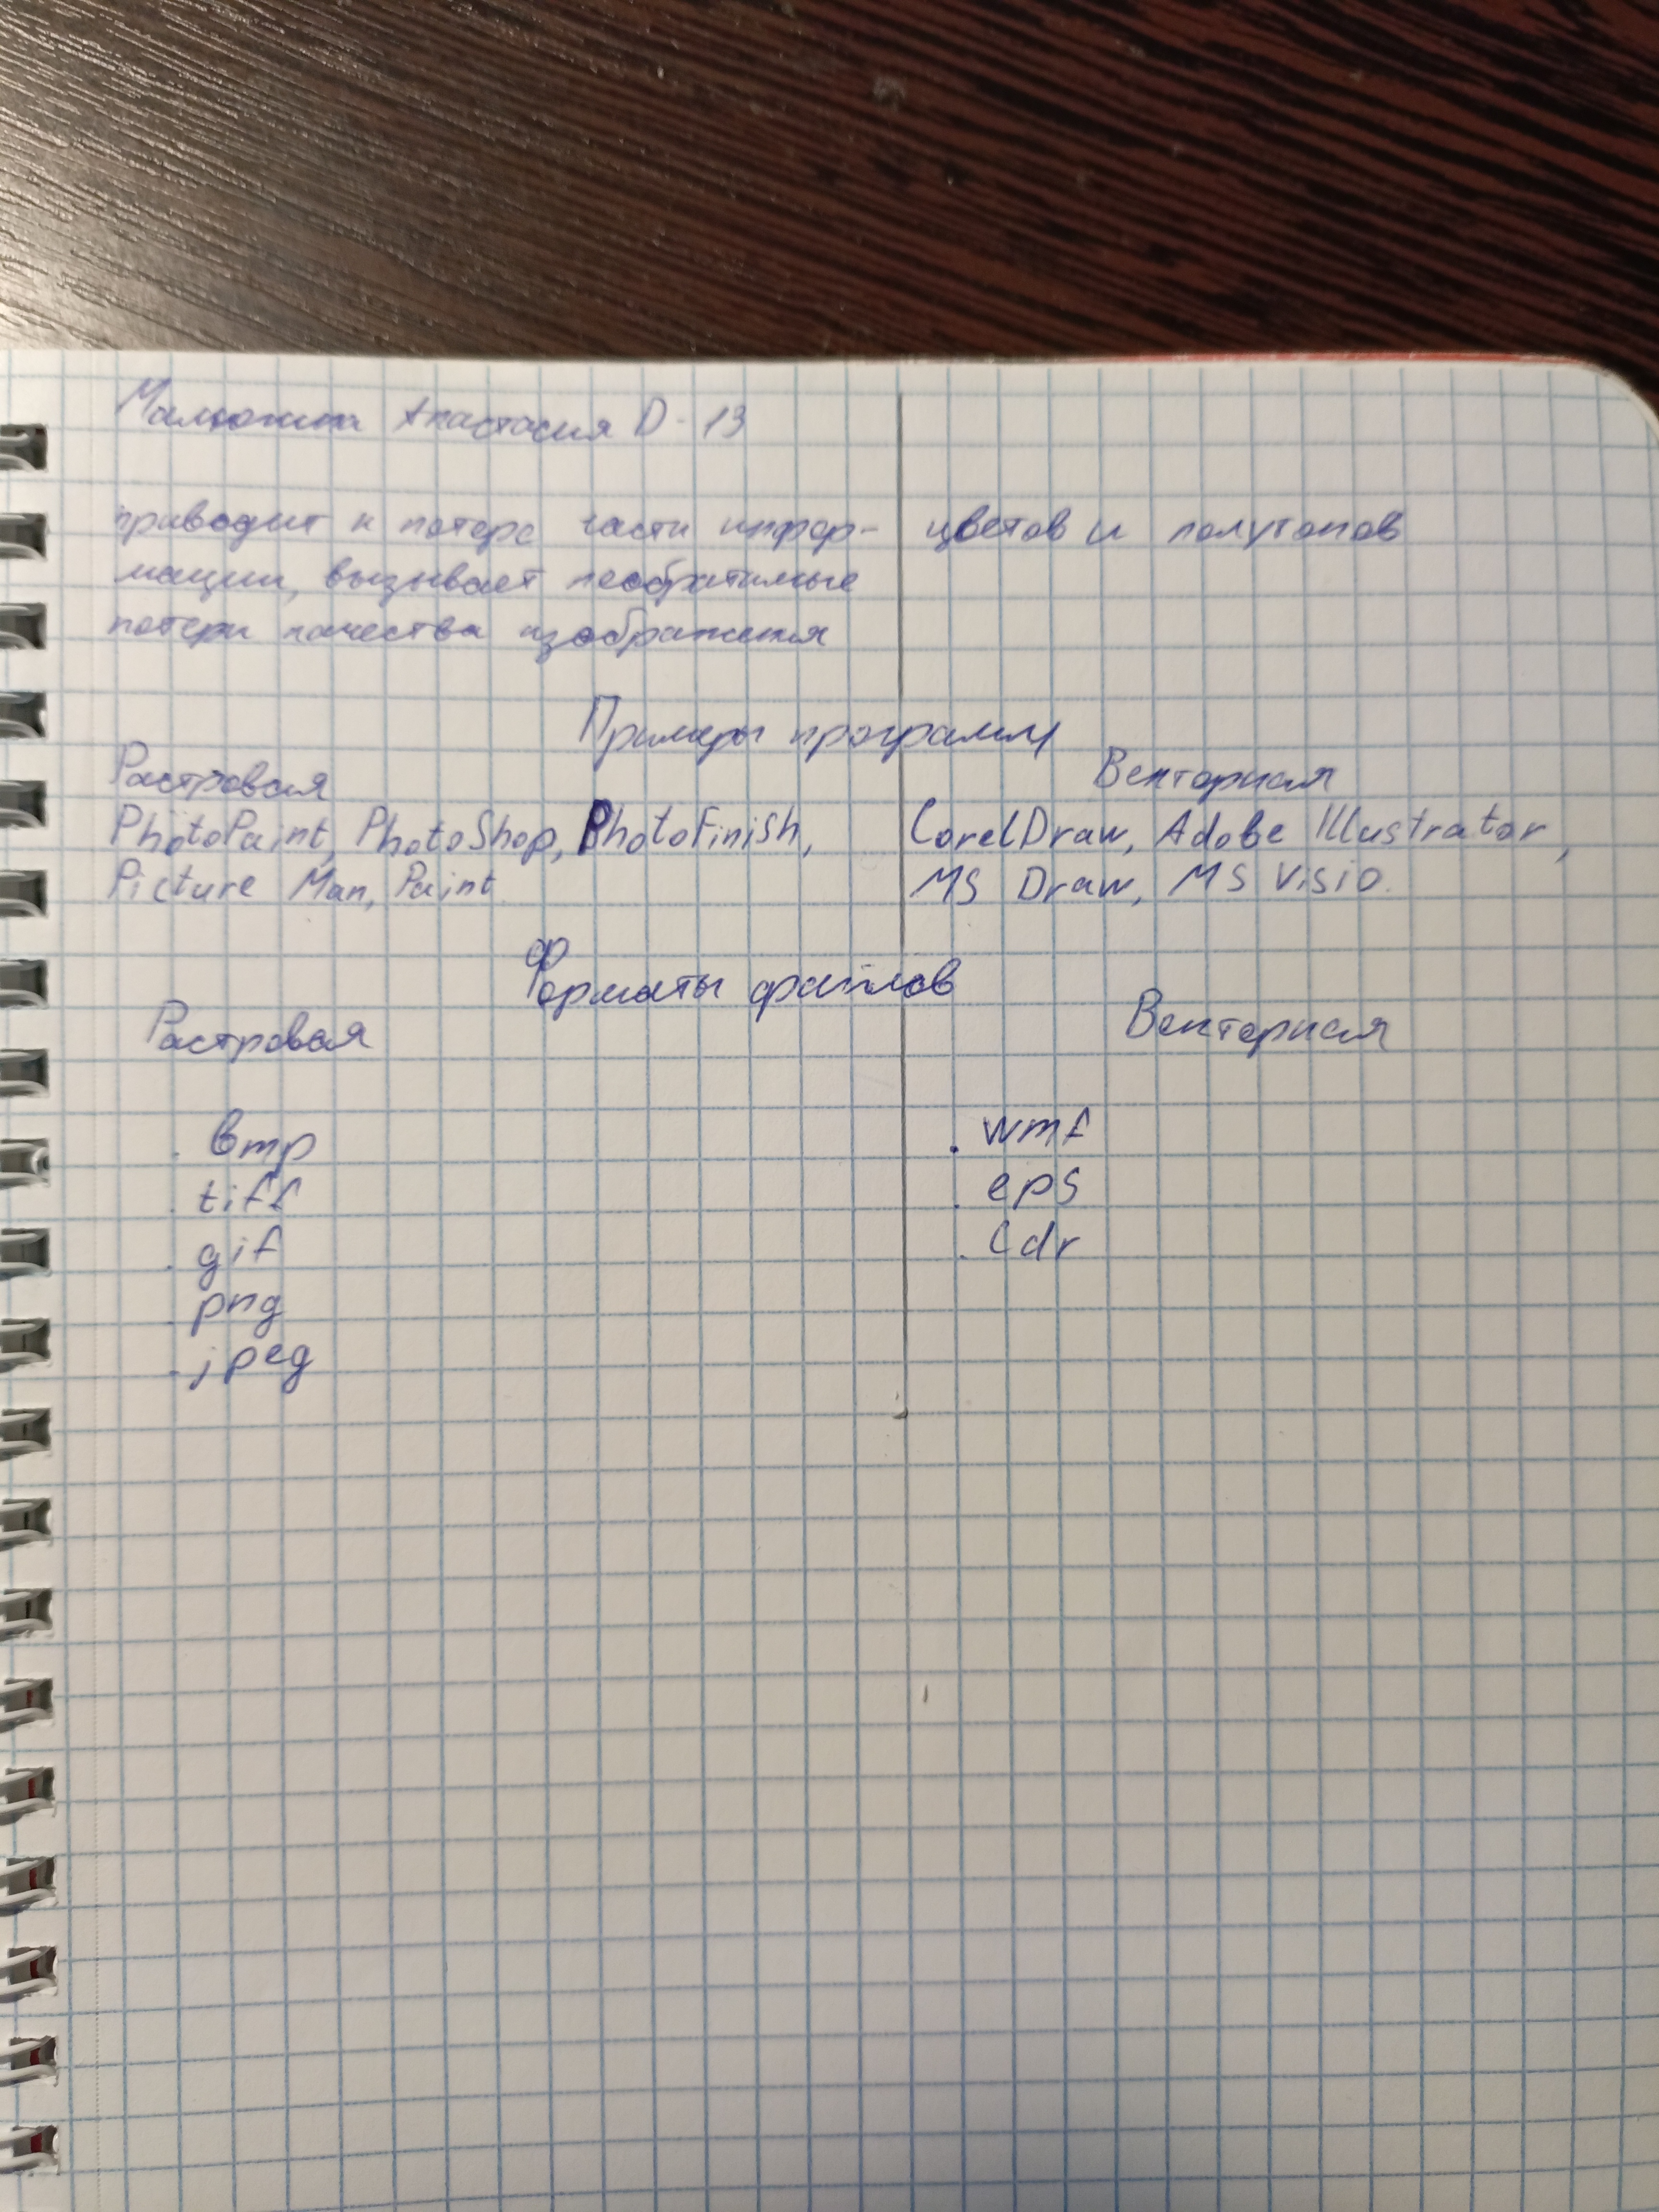 Анастасия D-13
приводит к потере части инфор- цветов и полутонов
мации, вызывает необратимые
потери качества изображения
Примеры программ
Растровая Векторная
PhotoPaint, PhotoShop, PhotoFinish, CorelDraw, Adobe Illustrator,
Picture Man, Paint. MS Draw, MS Visio.
Форматы файлов
Растровая Векторная
. bmp . wmf
. tiff . eps
. gif . cdr
. png
. jpeg